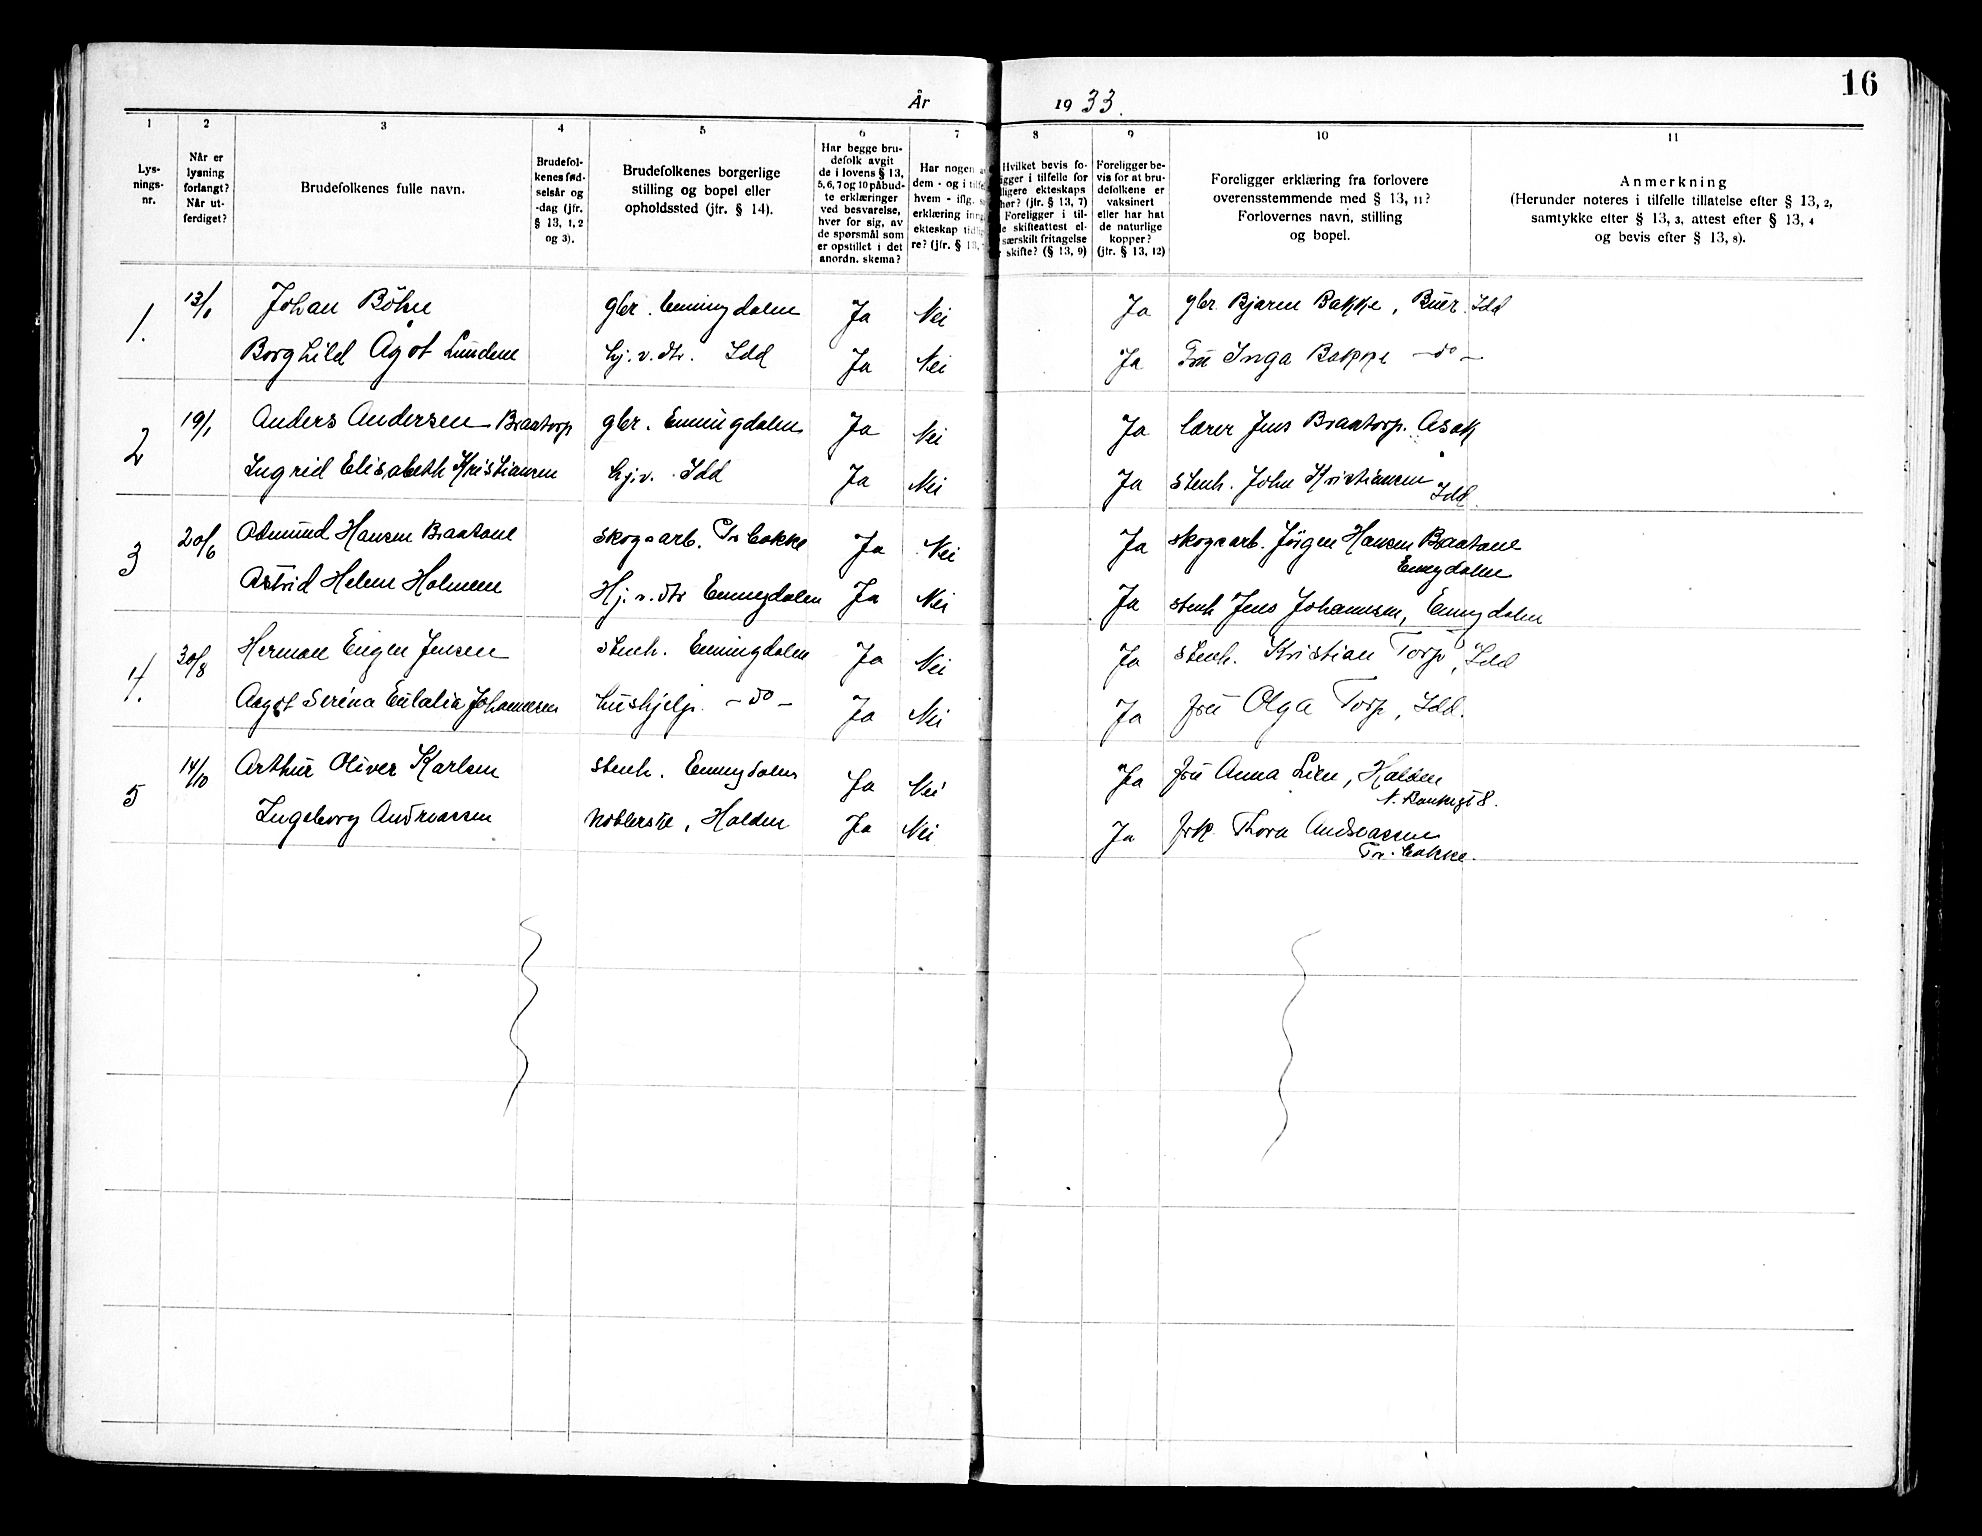 16
År 1933.
1 2 3 4 5 6 7 8 9 10 11
Lys-
nings-
nr.
Når er
lysning
forlangt?
Når ut-
ferdiget?
Brudefolkenes fulle navn.
Brudefol-
kenes fød-
selsår og
-dag (jfr.
§ 13, 1, 2
og 3).
Brudefolkenes borgerlige
stilling og bopel eller
opholdssted (jfr. § 14).
Har begge bru-
defolk avgit
de i lovens § 13,
5, 6, 7 og 10 påbud-
te erklæringer
ved besvarelse,
hver for sig, av
de spørsmål som
er opstillet i det
anordn. skema?
Har nogen a
dem - og i tilfe
hvem - iflg. s
erklæring inng
ekteskap tidli
re? (jfr. § 13,
Hvilket bevis fo-
igger i tilfelle for
ligere ekteskaps
hør? (jfr. § 13, 7)
Foreligger i til-
e skifteattest el-
særskilt fritagelse
skifte? (§ 13, 9)
Foreligger be-
vis for at bru-
defolkene er
vaksinert
eller har hat
de naturlige
kopper?
(jfr. § 13, 12)
Foreligger erklæring fra forlovere
overensstemmende med § 13, 11?
Forlovernes navn, stilling
og bopel.
Anmerkning
(Herunder noteres i tilfelle tillatelse efter § 13, 2,
samtykke efter § 13, 3, attest efter § 13, 4
og bevis efter § 13, 8).
1. 13/1 Johan Böhn gbr. Enningdalen Ja Nei Ja gbr. Bjarne Bakke, Buer. Idd
Borghild Ågot Lundene hj. v. dtr. Idd Ja Nei Ja Fru Inga Bakke - do -
2 19/1 Anders Andersen Braatorp gbr. Enningdalen Ja Nei Ja lærer Jens Braatorp. Asak
Ingrid Elisabeth Kristiansen hj.v. Idd Ja Nei Ja stenh. John Kristiansen
Idd.
3 20/6 Asmund Hansen Braatane skogsarb. Tr. bakke Ja Nei Ja skogsarb. Jörgen Hansen Braatane
Enngdalen
Astrid Helene Holmen Hj. v. dtr Enningdalen Ja Nei Ja stenh Jens Johannesen, Enngdalen
4. 30/8 Herman Eugen Jensen stenh. Enningdalen Ja Nei Ja stenh. Kristian Torp, Idd
Aagot Serina Eulalia Johannesen hushjelp. - do - Ja Nei Ja fru Olga Torp, Idd.
5 14/10 Arthur Oliver Karlsen stenh. Enngdalen Ja Nei Ja fru Anna Lien, Halden
N. Bankegt 8.
Ingeborg Andreassen Halden Ja Nei Ja frk. Thora Andreassen
Tr. bakke.